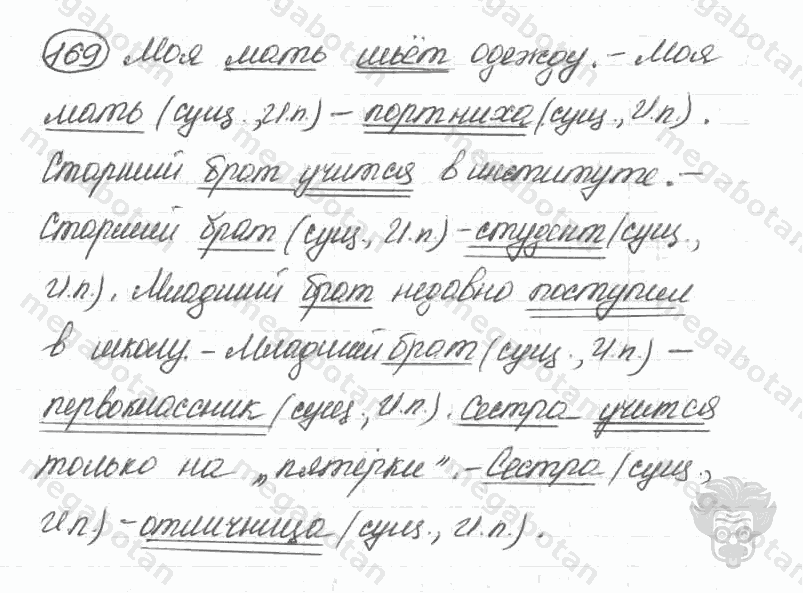 169 Моя мать шьёт одежду. – Моя
мать (сущ., И.п.) – портниха (сущ., И.п.).
Старший брат учится в институте. –
Старший брат (сущ., И.п.) – студент (сущ.,
И.п.). Младший брат недавно поступил
в школу. – Младший брат (сущ., И.п.) –
первоклассник (сущ., И.п.). Сестра учится
только на „пятёрки". – Сестра (сущ.,
И.п.) – отличница (сущ., И.п.).
megabotan